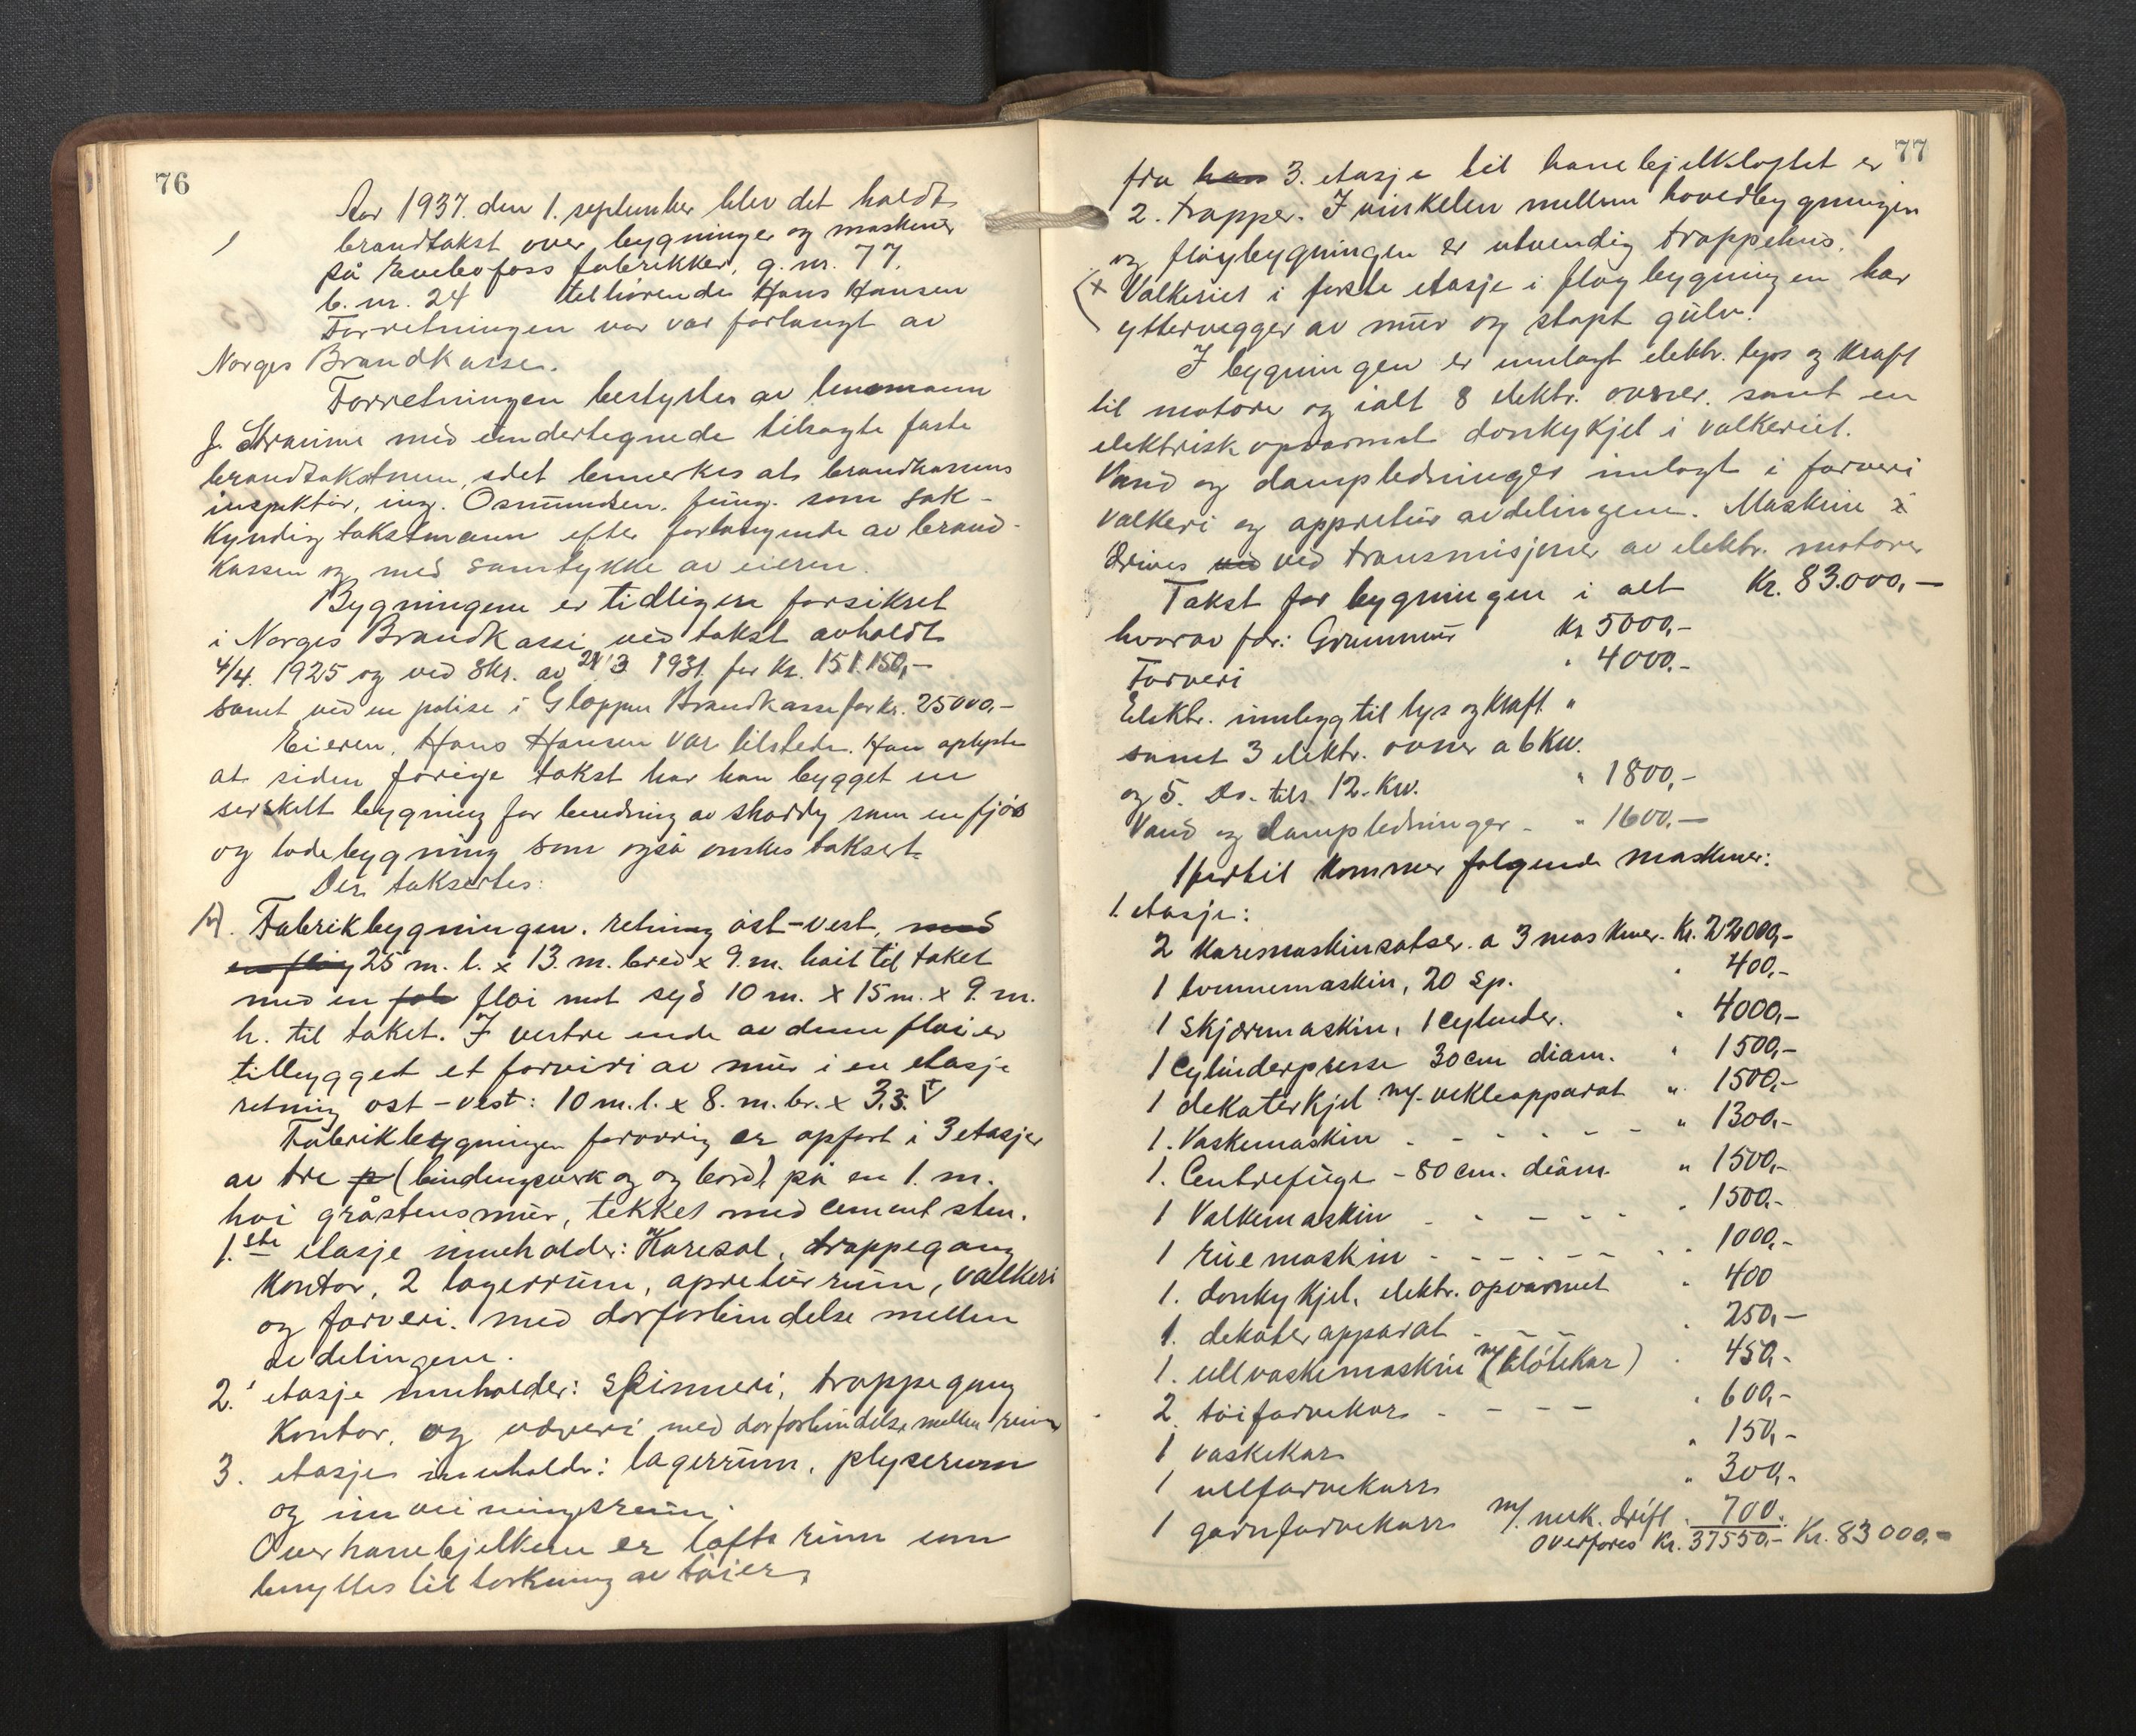 76
Aar 1937. den 1. september blev det holdt
brandtakst over bygninger og maskiner
på Evebofoss fabrikker, g. nr. 77,
b. nr. 24 tilhørende Hans Hansen
Forretningen var var forlangt av
Norges Brandkasse.
Forretningen bestyrtes av lensmann
J. Straume med undertegnede tilsagte faste
brandtakstmen, idet bemerkes at brandkassens
inspektør, ing. Osmundsen. fung. som sak-
kyndig takstmann efter forlangende av brand-
kassen og med samtykke av eieren.
Bygningene er tidligere forsikret
i Norges Brandkasse ved takst avholdt
4/4. 1925 og ved Skr. av 21/3 1931. for Kr. 151.150,-
samt ved en polise i Gloppen Brandkasse for kr. 25000,-
Eieren, Hans Hansen var tilstede. Han oplyste
at siden forrige takst har han bygget en
serskilt bygning for beredning av shoddy som en fjøs
og ladebygning som også ønskes taksert.
Der takseertes:
A). Fabrikbygningen. retning øst-vest, med
en fløy 25 m. l. x 13. m. bred x 9. m. høit til taket
med en fløi mot syd 10 m. x 15 m. x 9. m.
h. til taket. I vestre ende av denne fløi er
tilbygget et farveri av mur i en etasje
retning øst-vest: 10 m. l. x 8. m. br. x 3,5.
Fabrikbygningen forøvrig er opført i 3 etasjer
av tre p (bindingsverk og og bord) på en 1. m.
høi gråstensmur, tekket med cementsten.
1.ste etasje inneholder: Karesal, trappegang
kontor, 2 lagerrum, apreturrum, valkeri
og farveri. med dørforbindelse mellem
avdelingene.
2. etasje inneholder: Spinneri, trappegang
kontor, og væveri med dørforbindelse mellem rum
3. etasje inneholder: lagerrum, plyserum
og inn
Over hanebjelkene er lofts rum som
benyttes til tørkning av tøier,
77
fra han 3. etasje til hanebjelkloftet er
2. trapper. I vinkelen mellem hovedbygningen
og fløybygningen er utvendig trappehus.
(x Valkeriet i første etasje i fløybygningen har
yttervegger av mur og støpt gulv.
I bygningen er innlagt elektr. lys og kraft
til motorer og ialt 8 elektr. ovner. samt en
elektrisk opvarmet donkykjel i valkeriet.
Vand og dampledninger innlagt i farveri
valkeri og appretur avdelingene. Maskine
drives ved ved transmisjoner av elektr. motorer
Takst for bygningen i alt Kr. 83.000,-
hvorav for: Grunnmur Kr 5000,-
Farveri " 4000,-
Elektr. innlegg til lys og kraft "
samt 3 elektr. ovner a 6 Kw.
og 5. Do. tils 12. Kw. " 1800,-
Vand og dampledninger - " 1600,-
Hertil kommer følgende maskiner:
1. etasje:
2 Karemaskinsatser. a 3 maskiner. Kr. 22000,-
1 tvinnemaskin, 20 sp. " 400,-
1 skjæremaskin, 1 cylinder. " 4000,-
1 Cylinderpresse 30 cm diam. " 1500,-
1 dekaterkjel m/. vikleapparat " 1500,-
1. Vaskemaskin - - - - - - " 1300,-
1. Centrefuge - 80 cm. diam. " 1500,-
1 Valkemaskin - - - - - " 1500,-
1 ruemaskin - - - - - - " 1000,-
1. donkykjel, elektr. opvarmet " 400
1. dekaterapparat - - - " 250,-
1. ullvaskemaskin m/(bløtekar) " 450,-
2. tøifarvekar - - - - " 600,-
1 vaskekar " 150,-
1 ullfarvekar " 300,-
1 garnfarvekar m/. mek. drift " 700.
Overføres Kr. 37550,- Kr. 83000,-